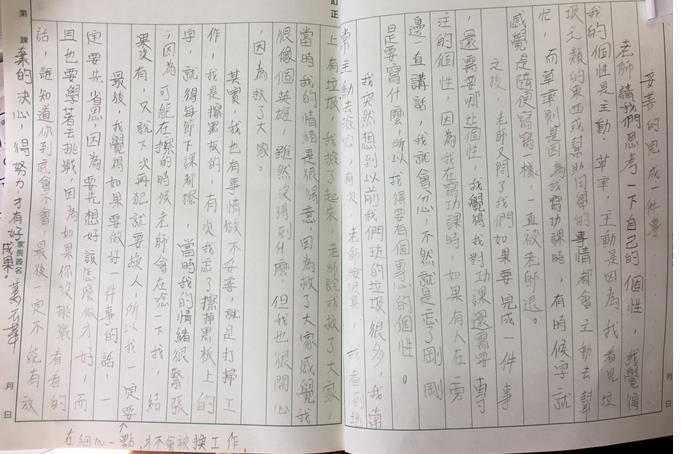 妥善的完成一件事
老師請我們思考一下自己的個性，我覺得
我的個性是主動、草率，主動是因為我看見垃
圾之類的東西或幫助同學的事情都會主動去幫
忙，而草率則是因為我寫功課時，有時候字就
感覺是隨便寫寫一樣，一直被老師退。
之後，老師問了我們如果要完成一件事
，還需要哪些個性，我覺得我對功課還需要專
注的個性，因為我在寫功課時，如果有人在旁
邊一直講話，我就會忿，不然就是忘了剛剛
是要寫什麼，所以我得要有個專心的個性。
我突然想到以前我們班的垃圾很多，我常
常主動去撿，有次，老師我看到地
上有垃圾，我撿了起來，老師說我救了大家，
當時我的情緒是很得意，因為救了大家感覺我
很像個英雄，雖然沒得到什麼，但我也很開心
，因為救了大家。
其實，我也有事情做不妥善，就是打掃工
作，我是擦黑板的，有次我忘了擦掉黑板上的
字，就得每節下課都擦，當時我的情緒很緊張
，因為可能在擦的時候老師會在唸一下我，結
果沒有，又說下次再犯就要換人，所以我一定要
在細心一點，才不會被換工作。
最後，我覺得如果要做好一件事的話，一
定要先省思，因為要先想好該怎麼做才好，而
且也要學著去挑戰，因為如果你沒挑戰看看的
話，誰知道你到底會不會，最後一定不能有放
棄的決心，得努力才有好成果。
第 課
訂正
家長簽名
月 日
月 日